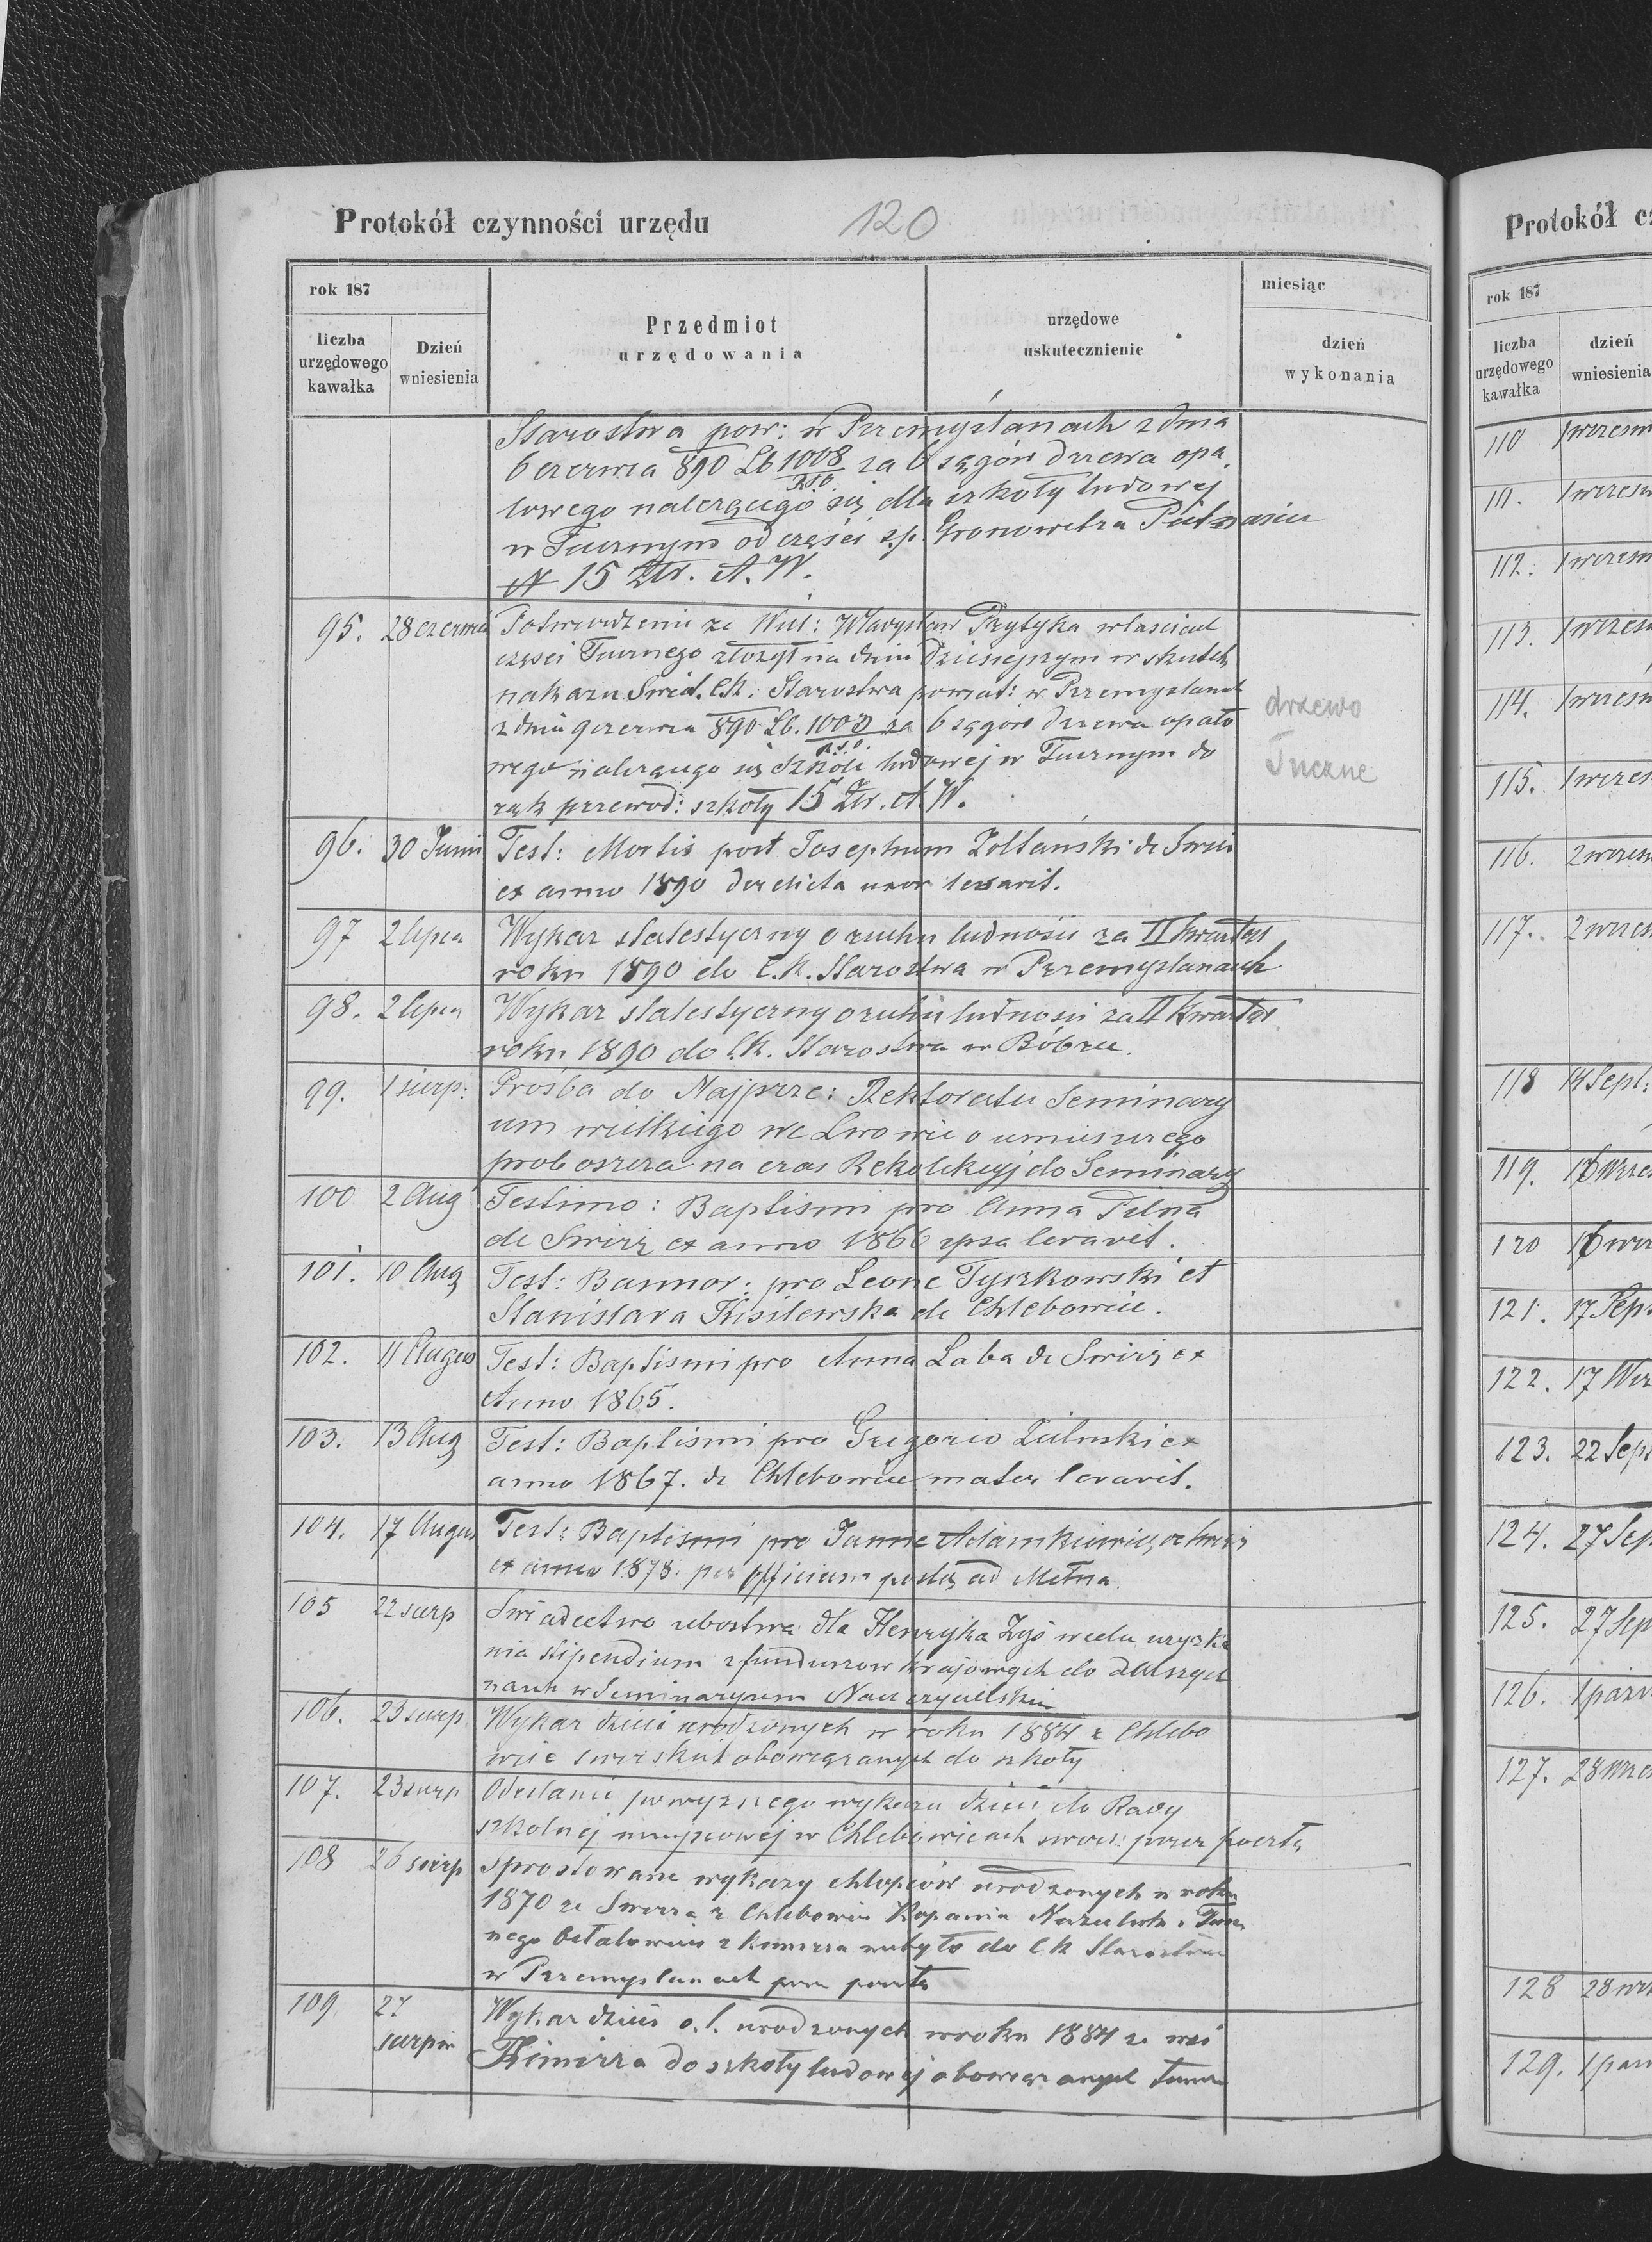 Protokół czynności urzędu
120
rok 187
miesiąc
liczba urzędowego kawałka
Dzień wniesienia
Przedmiot urzędowania
urzędowe uskutecznienie
dzień wykonania
Starostwa pow: w Przemyślanach z dnia
6 czerwca 890 Lb 1008 za 6 sągów drzewa opa
R.s.o.
łowego należącego się dla szkoły ludowej
w Tucznym od części s.p. Gronowetra
N 15 Złr. A. W.
95. 28 czerwca
Potwierdzenie ze Wiel: Władysław Przytyka właściciel
części Tucznego złożył na dniu dzisiejszym w skutek
nakazu Świet. C.K. Starostwa powiat: w Przemyslanach
z dnia 9 czerwca 890 Lb. 1008 za 6 sągów drzewa opało
R.s.o.
wego należącego się Szkole ludowej w Tucznym do
rąk przewod: szkoły 15 Złr. A. W.
drzewo
Tuczne
96. 30 Junii
Test: Mortis post Josephum Zołtański de Swirz
ex anno 1890 derelicta uxor levavit.
97 2 lipca
Wykaz statestyczny o ruchu ludności za II kwartał
roku 1890 do C.K. Starostwa w Przemyslanach
98. 2 lipca
Wykaz statestyczny o ruchu ludności za II kwartał
roku 1890 do C.K. Starostwa w Bóbrce.
99. 1 sierp:
Prośba do Najprze: Rektoratu Seminary
um wielkiego we Lwowie o
proboszcza na czas Rekolekcyj do Seminary
100 2 Aug
Testimo: Baptismi pro Anna Pelna
de Swirz ex anno 1866 ipsa levavit.
101. 10 Aug
Test: Bannor: pro Leone Tyszkowski et
Stanislava Kisilewska de Chlebowice.
102. 11 Augus
Test: Baptismi pro Anna Laba de Swirz ex
Anno 1865.
103. 13 Aug
Test: Baptismi pro Gregorio Zielinski ex
anno 1867. de Chlebowice mater levavit.
104. 17 Augus
Test: Baptismi pro Adamkiewicz de Swirz
ex anno 1878. per officium ad Mełna
105 22 sierp
Świadectwo ubostwa dla Henryka Zyś w celu uzyska
nia stipendium z funduszow krajowych do dalszych
nauk w Seminaryum Nauczycielskim
106. 23 sierp
Wykaz dzieci urodzonych w roku 1884 z Chlebo
wic swirskich obowiązanych do szkoły
107. 23 sierp
Odesłanie powyzszego wykazu dzieci do Rady
szkolnej miejscowej w Chlebowicach swirs: przez pocztę
108 26 sierp
sprostowane wykazy chłopców urodzonych w roku
1870 ze Swirza z Chlebowic Kopania i Tucz
nego z Kimirza do C K Starostwa
w Przemyslanach przez pocztę
109. 27 sierpnia
Wykaz dzieci o. l. urodzonych w roku 1884 ze wsi
Kimirza do szkoły ludowej obowiązanych
Protokół cz
rok 187
liczba urzędowego kawałka
dzień wniesienia
110 1 wrzesn
111. 1 wrzesn
112. 1 wrzesn
113. 1 wrzesn
114. 1 wrzesn
115. 1 wrzes
116. 2 wrzesn
117. 2 wrzes
118 14 Sept:
119. 16 wrzes
120 16 wrz
121. 17 Sept
122. 17 Wrz
123. 22 Sept
124. 27 Sep
125. 27 Sep
126. 1 pazd
127. 28 wrzes
128 28 wrz
129. 1 paz